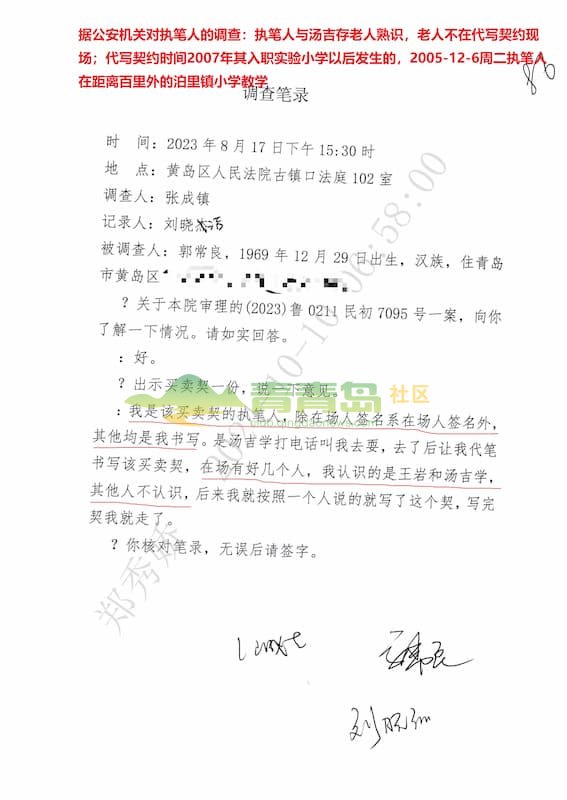 据公安机关对执笔人的调查：执笔人与汤吉存老人熟识，老人不在代写契约现
场；代写契约时间2007年其入职实验小学以后发生的，2005-12-6周二执笔人
在距离百里外的泊里镇小学教学
86
调查笔录
时　间：2023年8月17日下午15:30时
地　点：黄岛区人民法院古镇口法庭102室
调查人：张成镇
记录人：刘晓
被调查人：郭常良，1969年12月29日出生，汉族，住青岛
市黄岛区
？关于本院审理的(2023)鲁0211民初7095号一案，向你
了解一下情况。请如实回答。
：好。
？出示买卖契一份，说一下意见。
：我是该买卖契的执笔人，除在场人签名系在场人签名外，
其他均是我书写。是汤吉学打电话叫我去耍，去了后让我代笔
书写该买卖契，在场有好几个人，我认识的是王岩和汤吉学，
其他人不认识，后来我就按照一个人说的就写了这个契，写完
契我就走了。
？你核对笔录，无误后请签字。
青青岛社区
郑秀娇